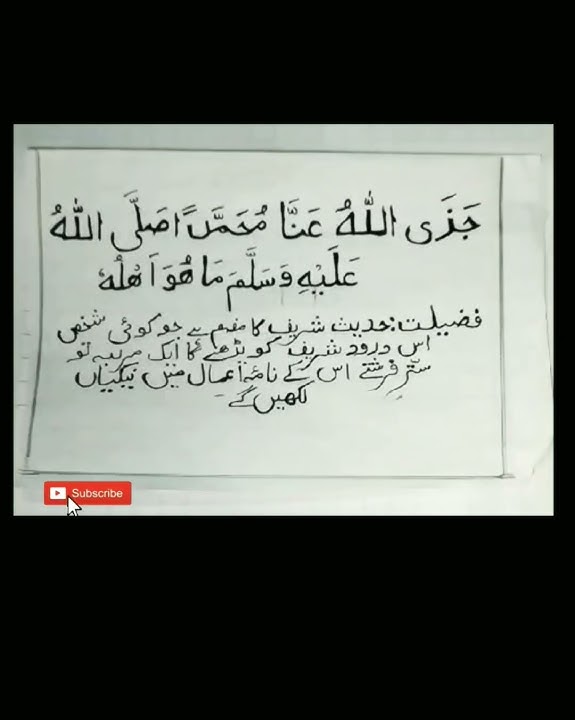 جَذَى اللّٰهُ عَنَّا مُحَمَّدًا صَلَّى اللّٰهُ
عَلَيْهِ وَسَلَّمَ مَا هُوَ اَهْلُهٗ
فضیلت: حدیث شریف کا مفہوم ہے جو کوئی شخص
اس درود شریف کو پڑھے گا ایک مرتبہ تو
ستّر فرشتے اس کے نامۂ اعمال میں نیکیاں
لکھیں گے
Subscribe